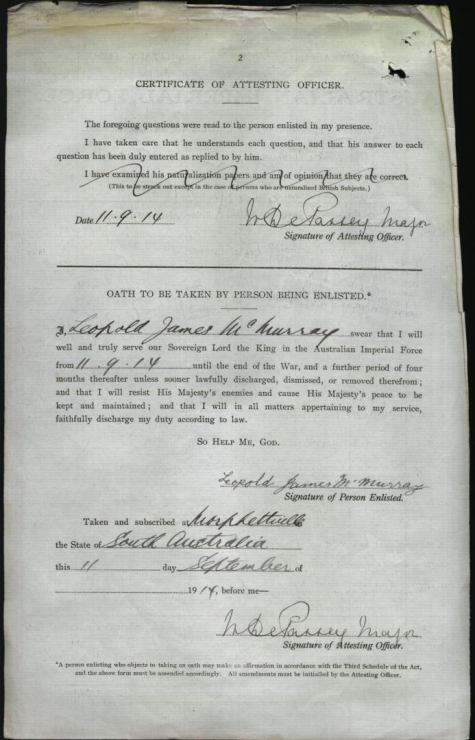 2
CERTIFICATE OF ATTESTING OFFICER.
The foregoing questions were read to the person enlisted in my presence.
I have taken care that he understands each question, and that his answer to each
question has been duly entered as replied to by him.
I have examined his naturalization papers and am of opinion that they are correct.
(This to be struck out except in the case of persons who are naturalized British Subjects.)
Date 11.9.14
Major
Signature of Attesting Officer.
OATH TO BE TAKEN BY PERSON BEING ENLISTED.*
I, Leopold James McMurray swear that I will
well and truly serve our Sovereign Lord the King in the Australian Imperial Force
from 11.9.14 until the end of the War, and a further period of four
months thereafter unless sooner lawfully discharged, dismissed, or removed therefrom;
and that I will resist His Majesty's enemies and cause His Majesty's peace to be
kept and maintained; and that I will in all matters appertaining to my service,
faithfully discharge my duty according to law.
SO HELP ME, GOD.
Leopold James McMurray
Signature of Person Enlisted.
Taken and subscribed at Morphettville
the State of South Australia
this 11 day September of
1914, before me—
Major
Signature of Attesting Officer.
*A person enlisting who objects to taking an oath may make an affirmation in accordance with the Third Schedule of the Act,
and the above form must be amended accordingly. All amendments must be initialled by the Attesting Officer.